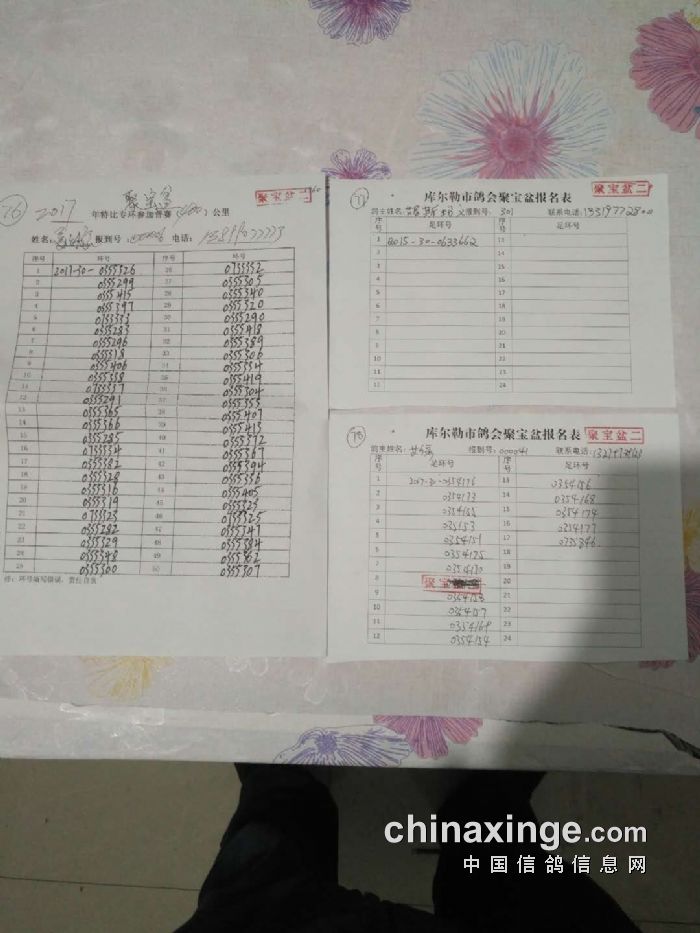 76
聚宝盆
聚宝盆二
2017 年特比专环参加普赛 公里
姓名: 报到号: 电话:
序号 环号 序号 环号
1 2017-30-0355326 26 0755352
2 0355299 27 0355305
3 0355415 28 0355340
4 0355397 29 0355320
5 0755353 30 0355290
6 0355283 31 0355418
7 0355296 32 0355389
8 0355318 33 0355306
9 0355406 34 0355354
10 0355338 35 0355419
11 0755337 36 0355304
12 0355291 37 0355355
13 0355365 38 0355407
14 0355366 39 0355413
15 0355285 40 0355372
16 0755354 41 0355367
17 0355382 42 0355394
18 0355328 43 0355356
19 0355316 44 0355405
20 0355319 45 0355325
21 0755323 46 0755325
22 0355282 47 0355347
23 0355329 48 0355384
24 0355348 49 0355362
25 0355300 50 0355307
注: 环号填写错误, 责任自负
77
聚宝盆二
库尔勒市鸽会聚宝盆报名表
鸽主姓名: 报到号: 301 联系电话:
序号 足环号 序号 足环号
1 2015-30-0633662 13
2 14
3 15
4 16
5 17
6 18
7 19
8 20
9 21
10 22
11 23
12 24
78
库尔勒市鸽会聚宝盆报名表
聚宝盆二
鸽主姓名: 报到号: 联系电话:
序号 足环号 序号 足环号
1 2017-30-0354176 13 0354156
2 0354173 14 0354168
3 0354155 15 0354174
4 035153 16 0354177
5 0354151 17 0335346
6 0354175 18
7 0354170 19
8 聚宝 20
9 0354158 21
10 0354157 22
11 0354169 23
12 0354154 24
chinaxinge.com
中国信鸽信息网